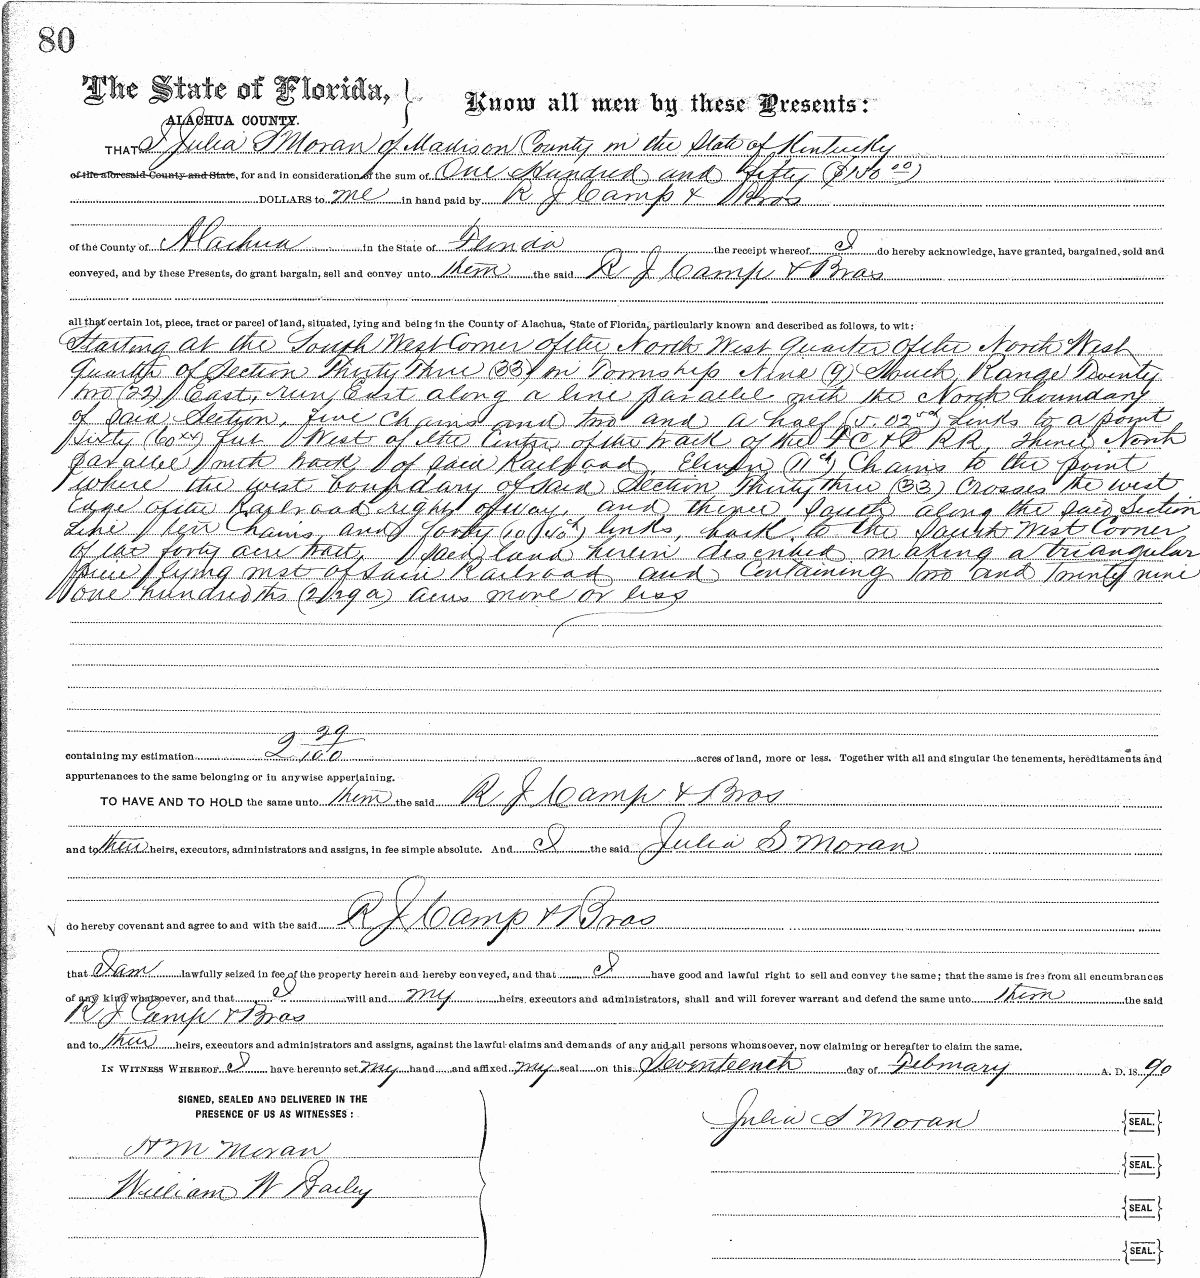 80
The State of Florida,
ALACHUA COUNTY.
Know all men by these Presents:
THAT I Julia S Moran of Madison County in the State of Kentucky
of the aforesaid County and State, for and in consideration of the sum of One Hundred and fifty ($150 00)
DOLLARS to me in hand paid by R J Camp & Bros
of the County of Alachua in the State of Florida the receipt whereof I do hereby acknowledge, have granted, bargained, sold and
conveyed, and by these Presents, do grant bargain, sell and convey unto them the said R J Camp & Bros
all that certain lot, piece, tract or parcel of land, situated, lying and being in the County of Alachua, State of Florida, particularly known and described as follows, to wit:
Starting at the South West Corner of the North West quarter of the North West
quarter of Section Thirty Three (33) in Township Nine (9) South Range Twenty
two (22) East, run East along a line parallel with the North boundary
of said Section, five chains and two and a half (5.02 ) Links to a point
Sixty (60 ) feet West of the Center of the track of the F C & P R R thence North
parallel with track of said Railroad Eleven (11 ) Chains to the point
where the west boundary of said Section Thirty three (33) Crosses the west
Edge of the Railroad right of way, and thence South along the said Section
Line ten Chains and forty (10 40) links, back to the South West Corner
of forty acre tract, said land herein described making a triangular
piece lying west of said Railroad and Containing two and twenty nine
one hundredths (2.29 a) acres more or less
containing my estimation 2 29/100 acres of land, more or less. Together with all and singular the tenements, hereditaments and
appurtenances to the same belonging or in anywise appertaining.
TO HAVE AND TO HOLD the same unto them the said R J Camp & Bros
and to their heirs, executors, administrators and assigns, in fee simple absolute. And I the said Julia S Moran
do hereby covenant and agree to and with the said R J Camp & Bros
that I am lawfully seized in fee of the property herein and hereby conveyed, and that I have good and lawful right to sell and convey the same; that the same is free from all encumbrances
of any kind whatsoever, and that I will and my heirs, executors and administrators, shall and will forever warrant and defend the same unto them the said
R J Camp & Bros
and to their heirs, executors and administrators and assigns, against the lawful claims and demands of any and all persons whomsoever, now claiming or hereafter to claim the same.
IN WITNESS WHEREOF I have hereunto set my hand and affixed my seal on this Seventeenth day of February A. D. 18 90
SIGNED, SEALED AND DELIVERED IN THE
PRESENCE OF US AS WITNESSES:
H M Moran
William W Bailey
Julia S Moran SEAL.
SEAL.
SEAL
SEAL.